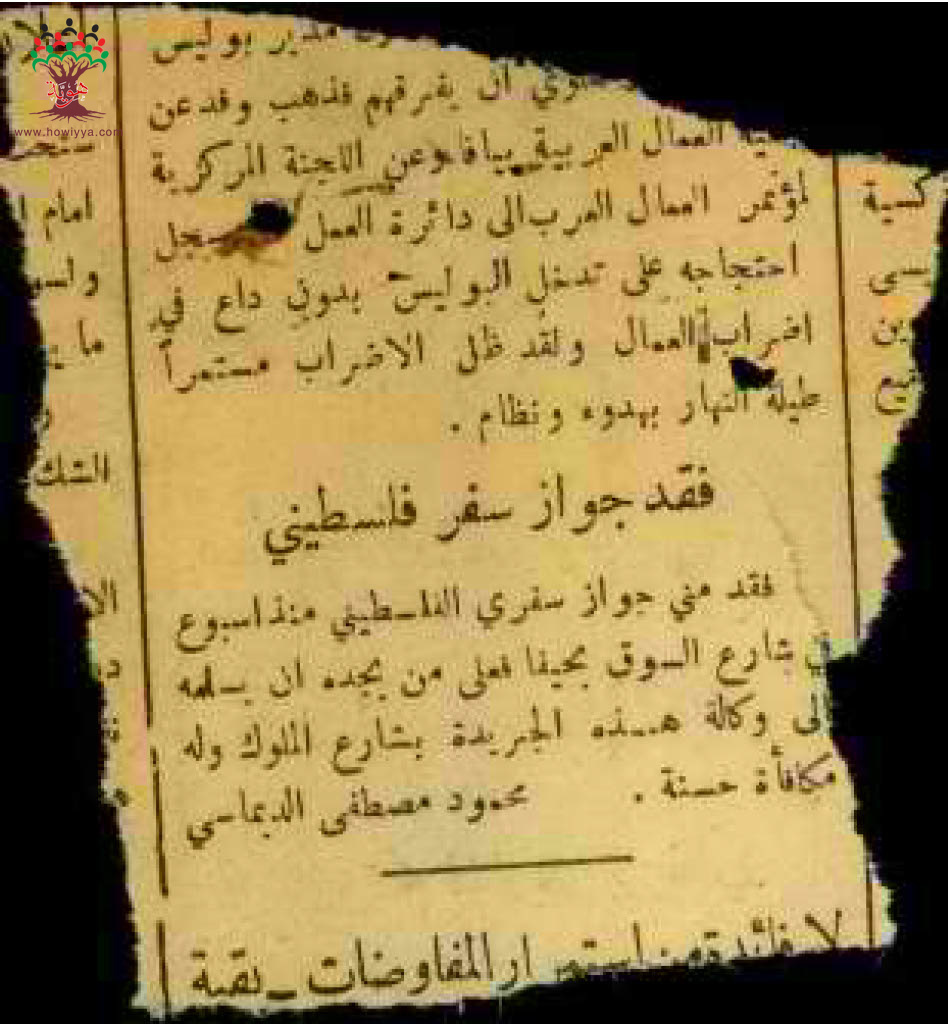 هوية
www.howiyya.com
مدير بوليس
ان يفرقهم فذهب وفد عن
العمال العربية بيافا وعن اللجنة المركزية
لمؤتمر العمال العرب الى دائرة العمل
احتجاجه على تدخل البوليس بدون داع في
اضراب العمال ولقد ظل الاضراب مستمراً
طيلة النهار بهدوء ونظام .
فقد جواز سفر فلسطيني
فقد مني جواز سفري الفلسطيني منذ اسبوع
في شارع السوق بحيفا فعلى من يجده ان يسلمه
الى وكالة هذه الجريدة بشارع الملوك وله
مكافأة حسنة . محمود مصطفى الديماسي
لا فائدة من استمرار المفاوضات - بقية
امام
ما
الشك